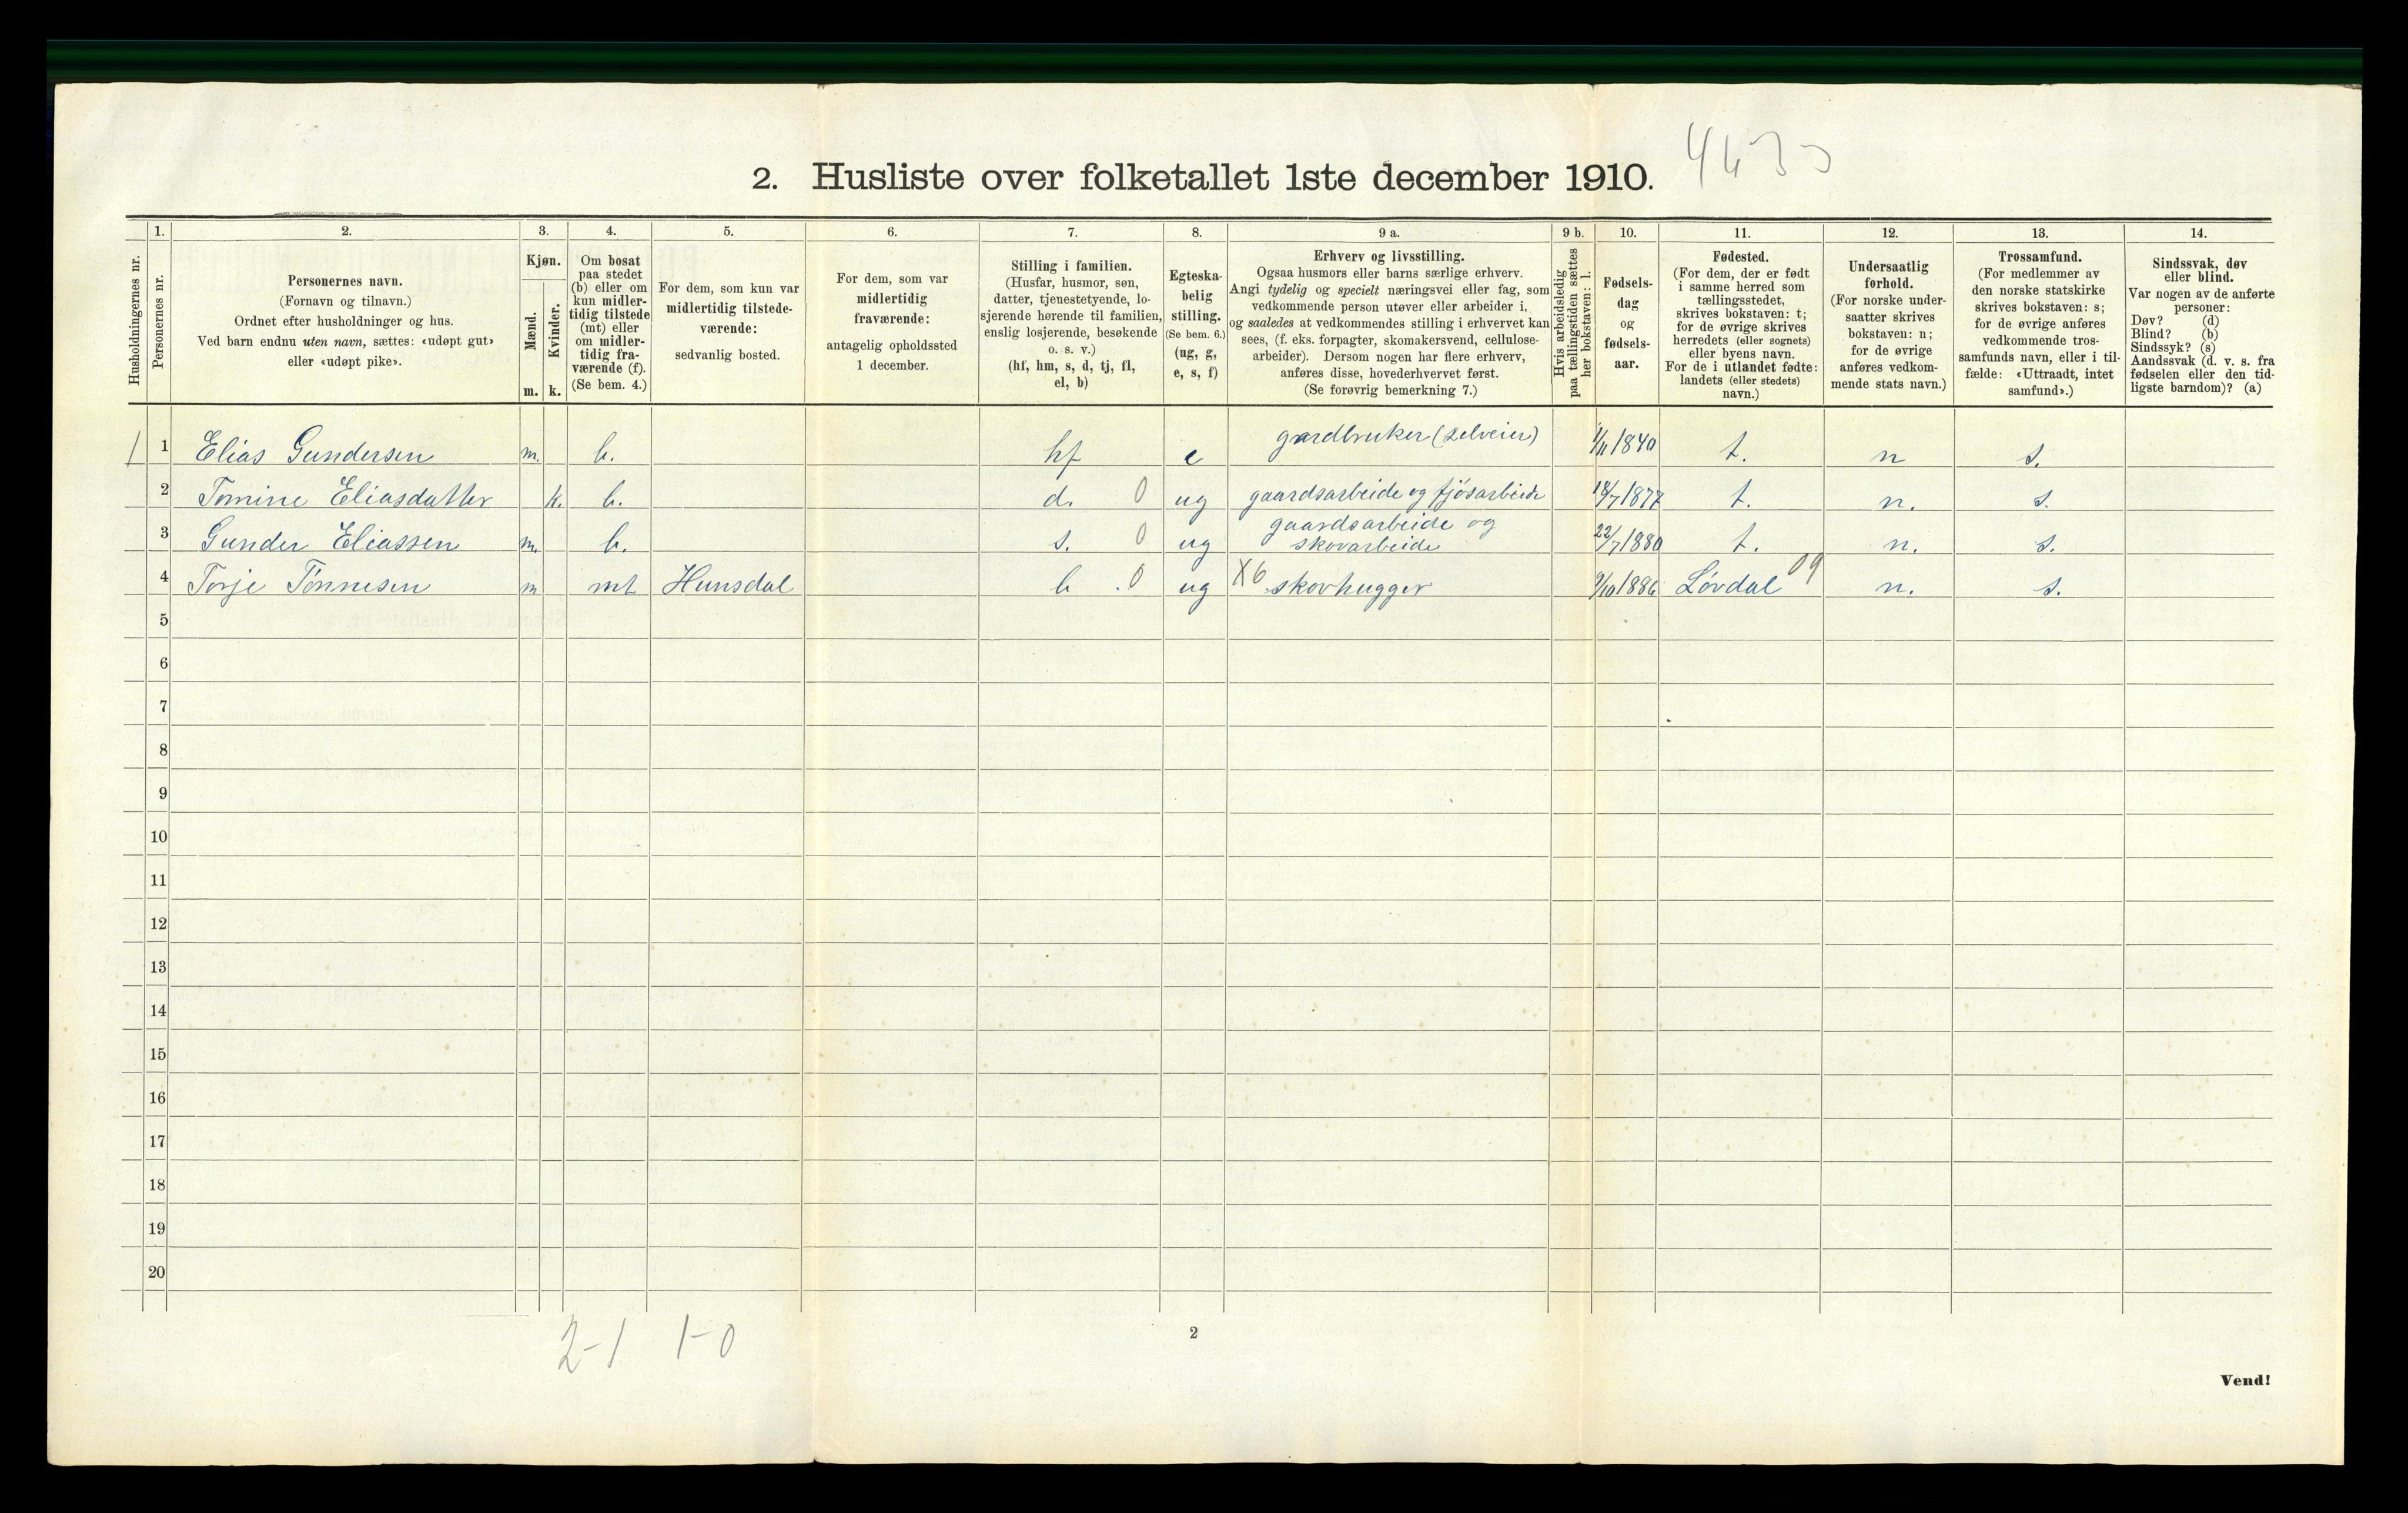 2. Husliste over folketallet 1ste december 1910.
Husholdningernes nr.
1.
Personernes nr.
2.
Personernes navn.
(Fornavn og tilnavn.)
Ordnet efter husholdninger og hus.
Ved barn endnu uten navn, sættes: «udøpt gut»
eller «udøpt pike».
3.
Kjøn.
Mænd.
Kvinder.
m. k.
4.
Om bosat
paa stedet
(b) eller om
kun midler-
tidig tilstede
(mt) eller
om midler-
tidig fra-
værende (f).
(Se bem. 4.)
5.
For dem, som kun var
midlertidig tilstede-
værende:
sedvanlig bosted.
6.
For dem, som var
midlertidig
fraværende:
antagelig opholdssted
1 december.
7.
Stilling i familien.
(Husfar, husmor, søn,
datter, tjenestetyende, lo-
sjerende hørende til familien,
enslig losjerende, besøkende
o. s. v.)
(hf, hm, s, d, tj, fl,
el, b)
8.
Egteska-
belig
stilling.
(Se bem. 6.)
(ug, g,
e, s, f)
9 a.
Erhverv og livsstilling.
Ogsaa husmors eller barns særlige erhverv.
Angi tydelig og specielt næringsvei eller fag, som
vedkommende person utøver eller arbeider i,
og saaledes at vedkommendes stilling i erhvervet kan
sees, (f. eks. forpagter, skomakersvend, cellulose-
arbeider). Dersom nogen har flere erhverv,
anføres disse, hovederhvervet først.
(Se forøvrig bemerkning 7.)
9 b.
Hvis arbeidsledig
paa tællingstiden sættes
her bokstaven: l.
10.
Fødsels-
dag
og
fødsels-
aar.
11.
Fødested.
(For dem, der er født
i samme herred som
tællingsstedet,
skrives bokstaven: t;
for de øvrige skrives
herredets (eller sognets)
eller byens navn.
For de i utlandet fødte:
landets (eller stedets)
navn.)
12.
Undersaatlig
forhold.
(For norske under-
saatter skrives
bokstaven: n;
for de øvrige
anføres vedkom-
mende stats navn.)
13.
Trossamfund.
(For medlemmer av
den norske statskirke
skrives bokstaven: s;
for de øvrige anføres
vedkommende tros-
samfunds navn, eller i til-
fælde: «Uttraadt, intet
samfund».)
14.
Sindssvak, døv
eller blind.
Var nogen av de anførte
personer:
Døv? (d)
Blind? (b)
Sindssyk? (s)
Aandssvak (d. v. s. fra
fødselen eller den tid-
ligste barndom)? (a)
1 1 Elias Gundersen m. b. hf e gardbruker (selveier) 1/11 1840 t. n s.
2 Tomine Eliasdatter k. b. d. 0 ug gaardsarbeide og fjösarbeide 18/7 1877 t. n. s.
3 Gunder Eliassen m. b. s. 0 ug gaardsarbeide og
skovarbeide 22/7 1880 t. n. s.
4 Torje Tönnesen m mt Hunsdal b . 0 ug X6 skovhugger 9/10 1886 Lövdal 09 n. s.
5
6
7
8
9
10
11
12
13
14
15
16
17
18
19
20
2-1 1-0
2
Vend!